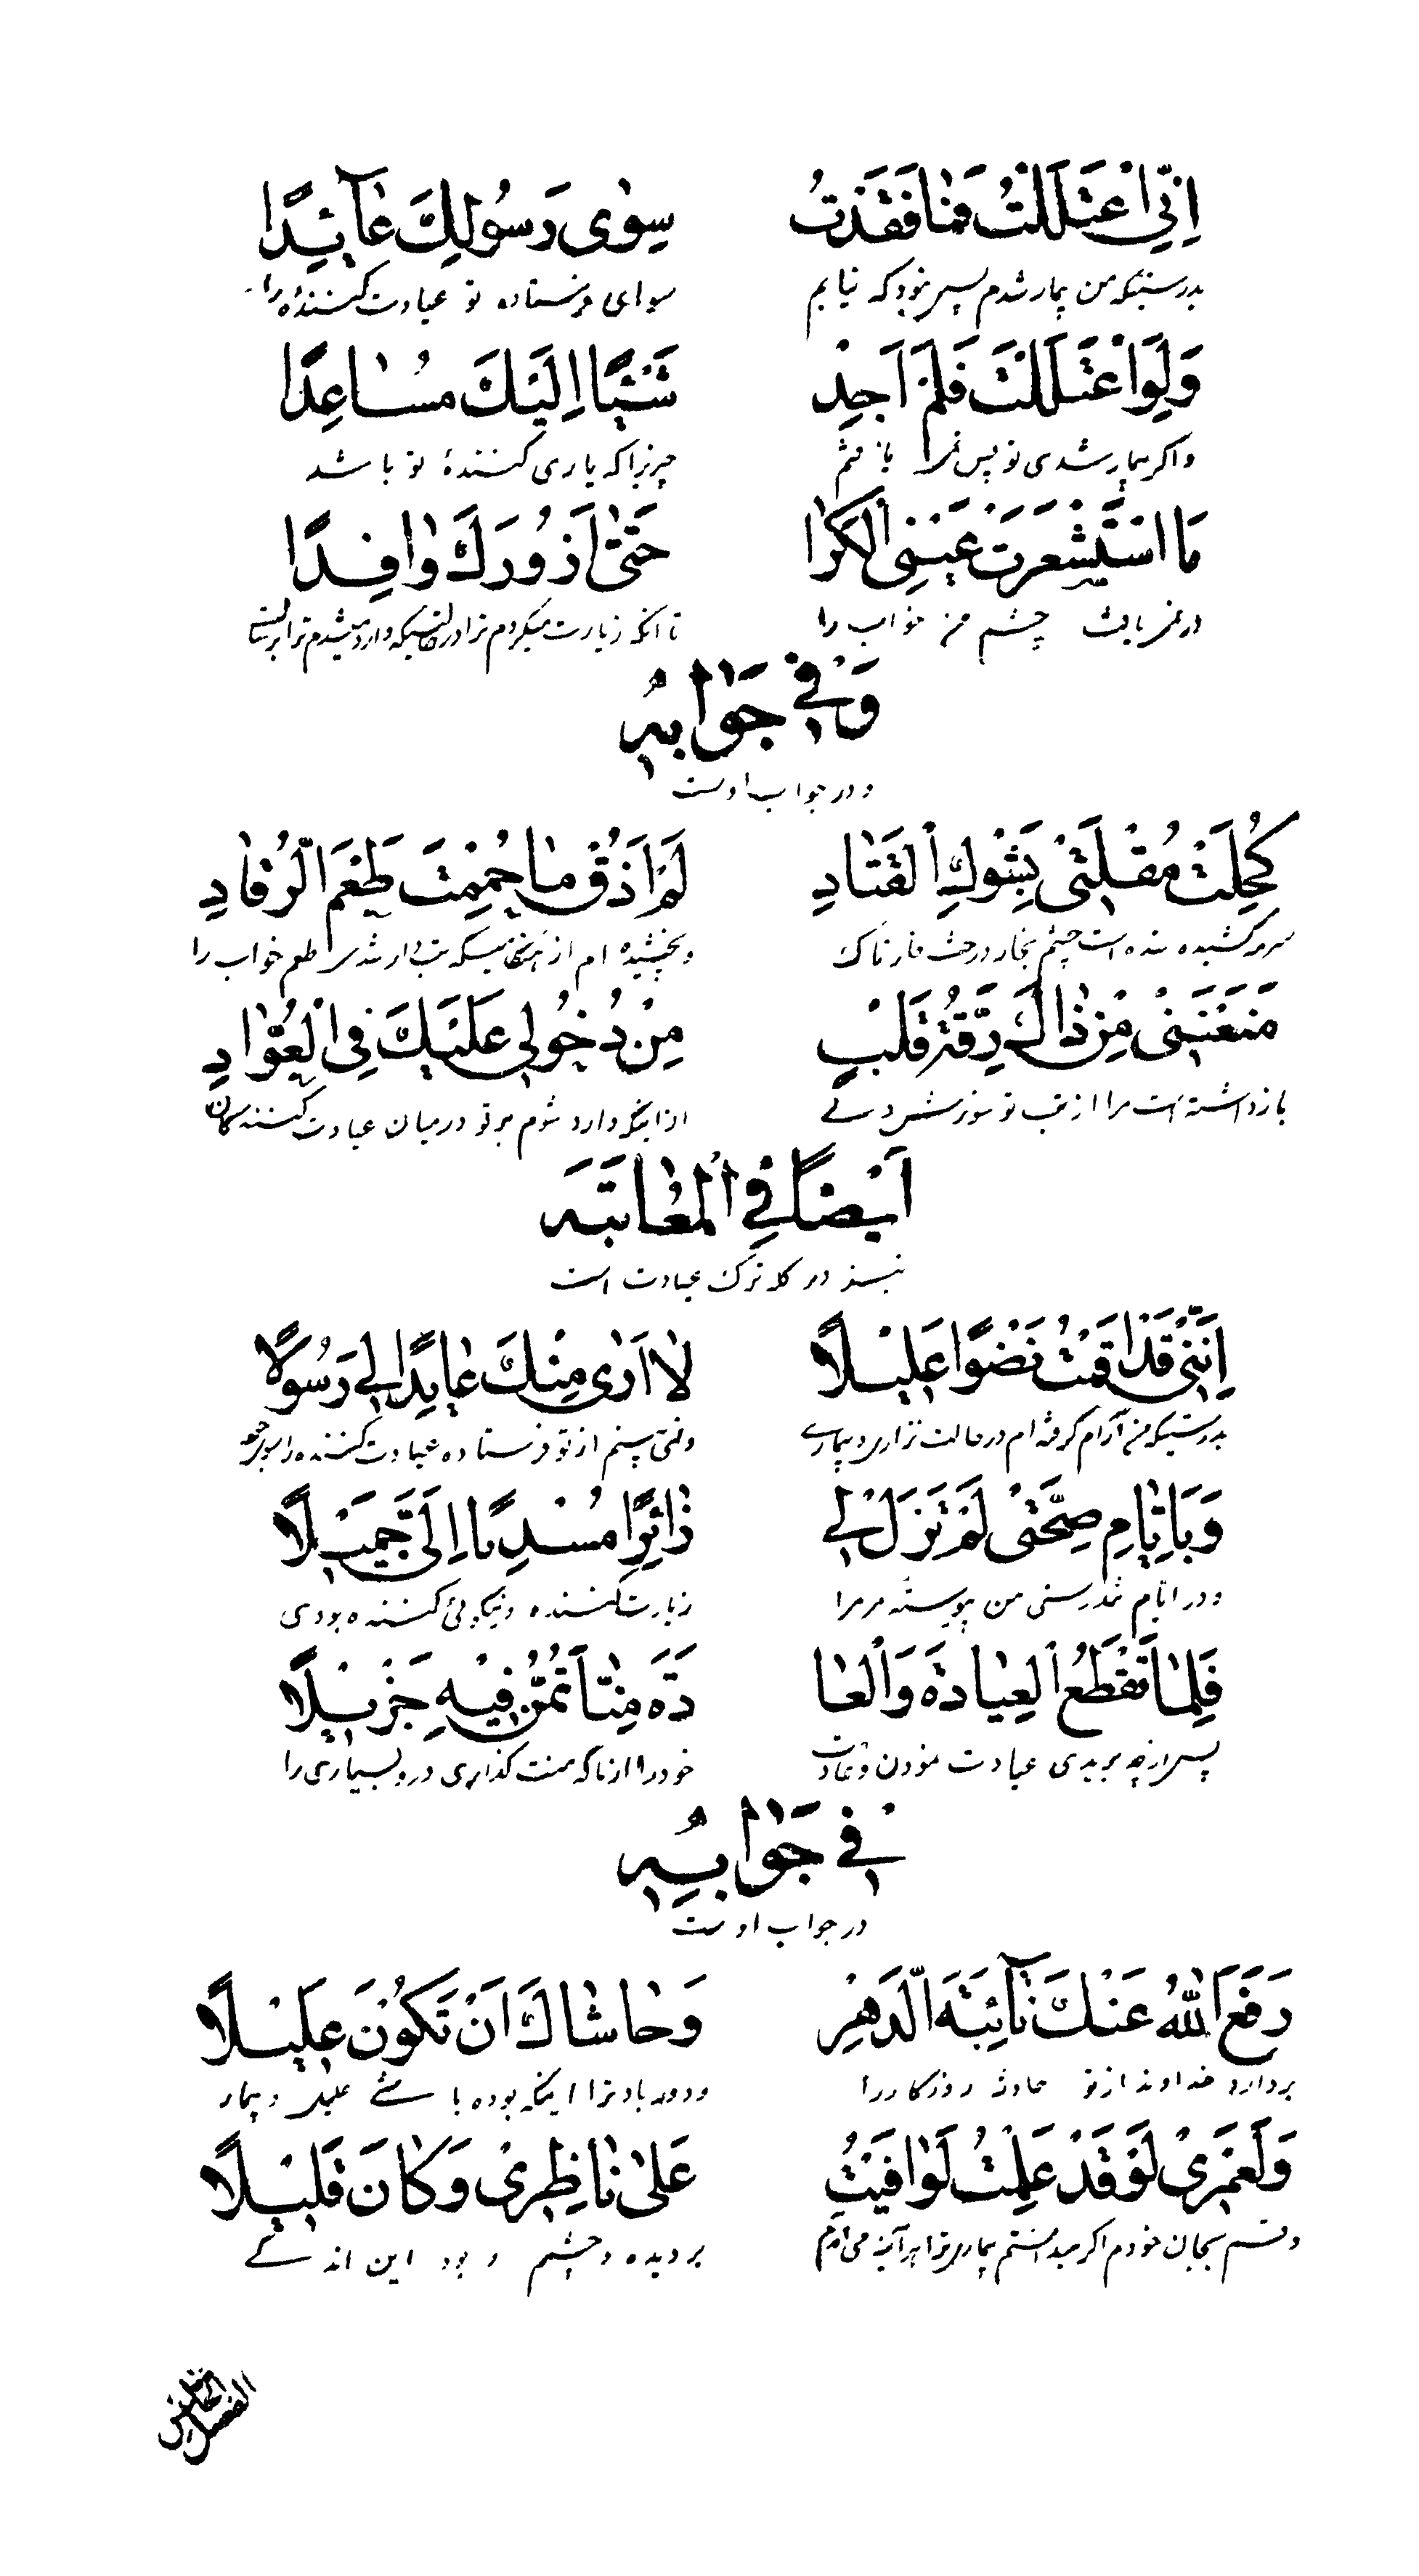 اِنّی اعْتَلَلْتُ فَمٰا فَقَدْتُ سِوٰی رَسُولِكَ عٰآئِدًا
بدرستیکه من بیمار شدم پس نبود که نیابم سوای فرستاده تو عیادت کنندهٔ را
وَلَوِ اعْتَلَلْتَ فَلَمْ اَجِدْ شَیْئًا اِلَیْكَ مُسٰاعِدًا
واکر بیمار شدی تو پس نمی یافتم چیزیرا که یاری کنندهٔ تو باشد
مَا اسْتَشْعَرَتْ عَیْنِی الْکَرٰا حَتّٰی اَزُورَكَ وٰافِدًا
در نمی یافت چشم من خواب را تا آنکه زیارت میکردم ترا در حالتیکه وارد میشدم ترا
وَفِی جَوٰابِهِ
و در جواب اوست
کُحِلَتْ مُقْلَتِی بِشَوْكِ الْقَتٰادِ لَمْ اَذُقْ مٰا حُمِمْتَ طَعْمَ الرُّقٰادِ
سرمه کشیده شده است چشم بخار درخت خارناک و نچشیده ام از هنگامیکه تب دار شدی طعم خواب را
مَنَعَتْنِی مِنْ ذٰاكَ رِقَّةُ قَلْبٍ مِنْ دُخُولِی عَلَیْكَ فِی الْعُوّٰادِ
بازداشته است مرا از تب تو سوزش دلے از اینکه وارد شوم بر تو در میان عیادت کنندگان
اَیْضًا فِی الْمُعٰاتَبَه
نیز در کله ترک عیادت است
اِنَّنِی قَدْ اَقَمْتُ نِضْوًا عَلِیْلًا لٰا اَرٰی مِنْكَ عٰایِدًا لِی رَسُولًا
بدرستیکه من آرام گرفته ام در حالت نزاری و بیمارے ونمی بینم از تو فرستاده عیادت کننده را
وَبِاَیّٰامِ صِحَّتِی لَمْ تَزَلْ لِی زٰائِرًا مُسْدِیًا اِلَیَّ جَمِیْلًا
و در ایّام تندرستی من پیوسته مرمرا زیارت کننده و نیکوئی کننده بودی
فَلِمٰا تَقْطَعُ الْعِیٰادَةَ وَالْعٰا دَةَ مِنّٰا تَمُنُّ فِیْهِ جَزِیْلًا
پس از چه بریدی عیادت نمودن وعادت خود را از ما که منت گذاری در و بسیاری را
فِی جَوٰابِهِ
در جواب اوست
رَفَعَ اللّٰهُ عَنْكَ نٰآئِبَةَ الدَّهْرِ وَحٰاشٰاكَ اَنْ تَکُوْنَ عَلِیْلًا
بردارد خداوند از تو حادثه روزکار را و دور باد ترا اینکه بوده باشے علیل و بیمار
وَلَعَمْرِیْ لَوْ قَدْ عَلِمْتُ لَوٰافَیْتُ عَلٰی نٰاظِرِیْ وَکٰانَ قَلِیْلًا
وقسم بجان خودم اکر میدانستم بیماری ترا هر آینه می آمدم بر دیده وچشم و بود این اندکے
الفصل الخامس